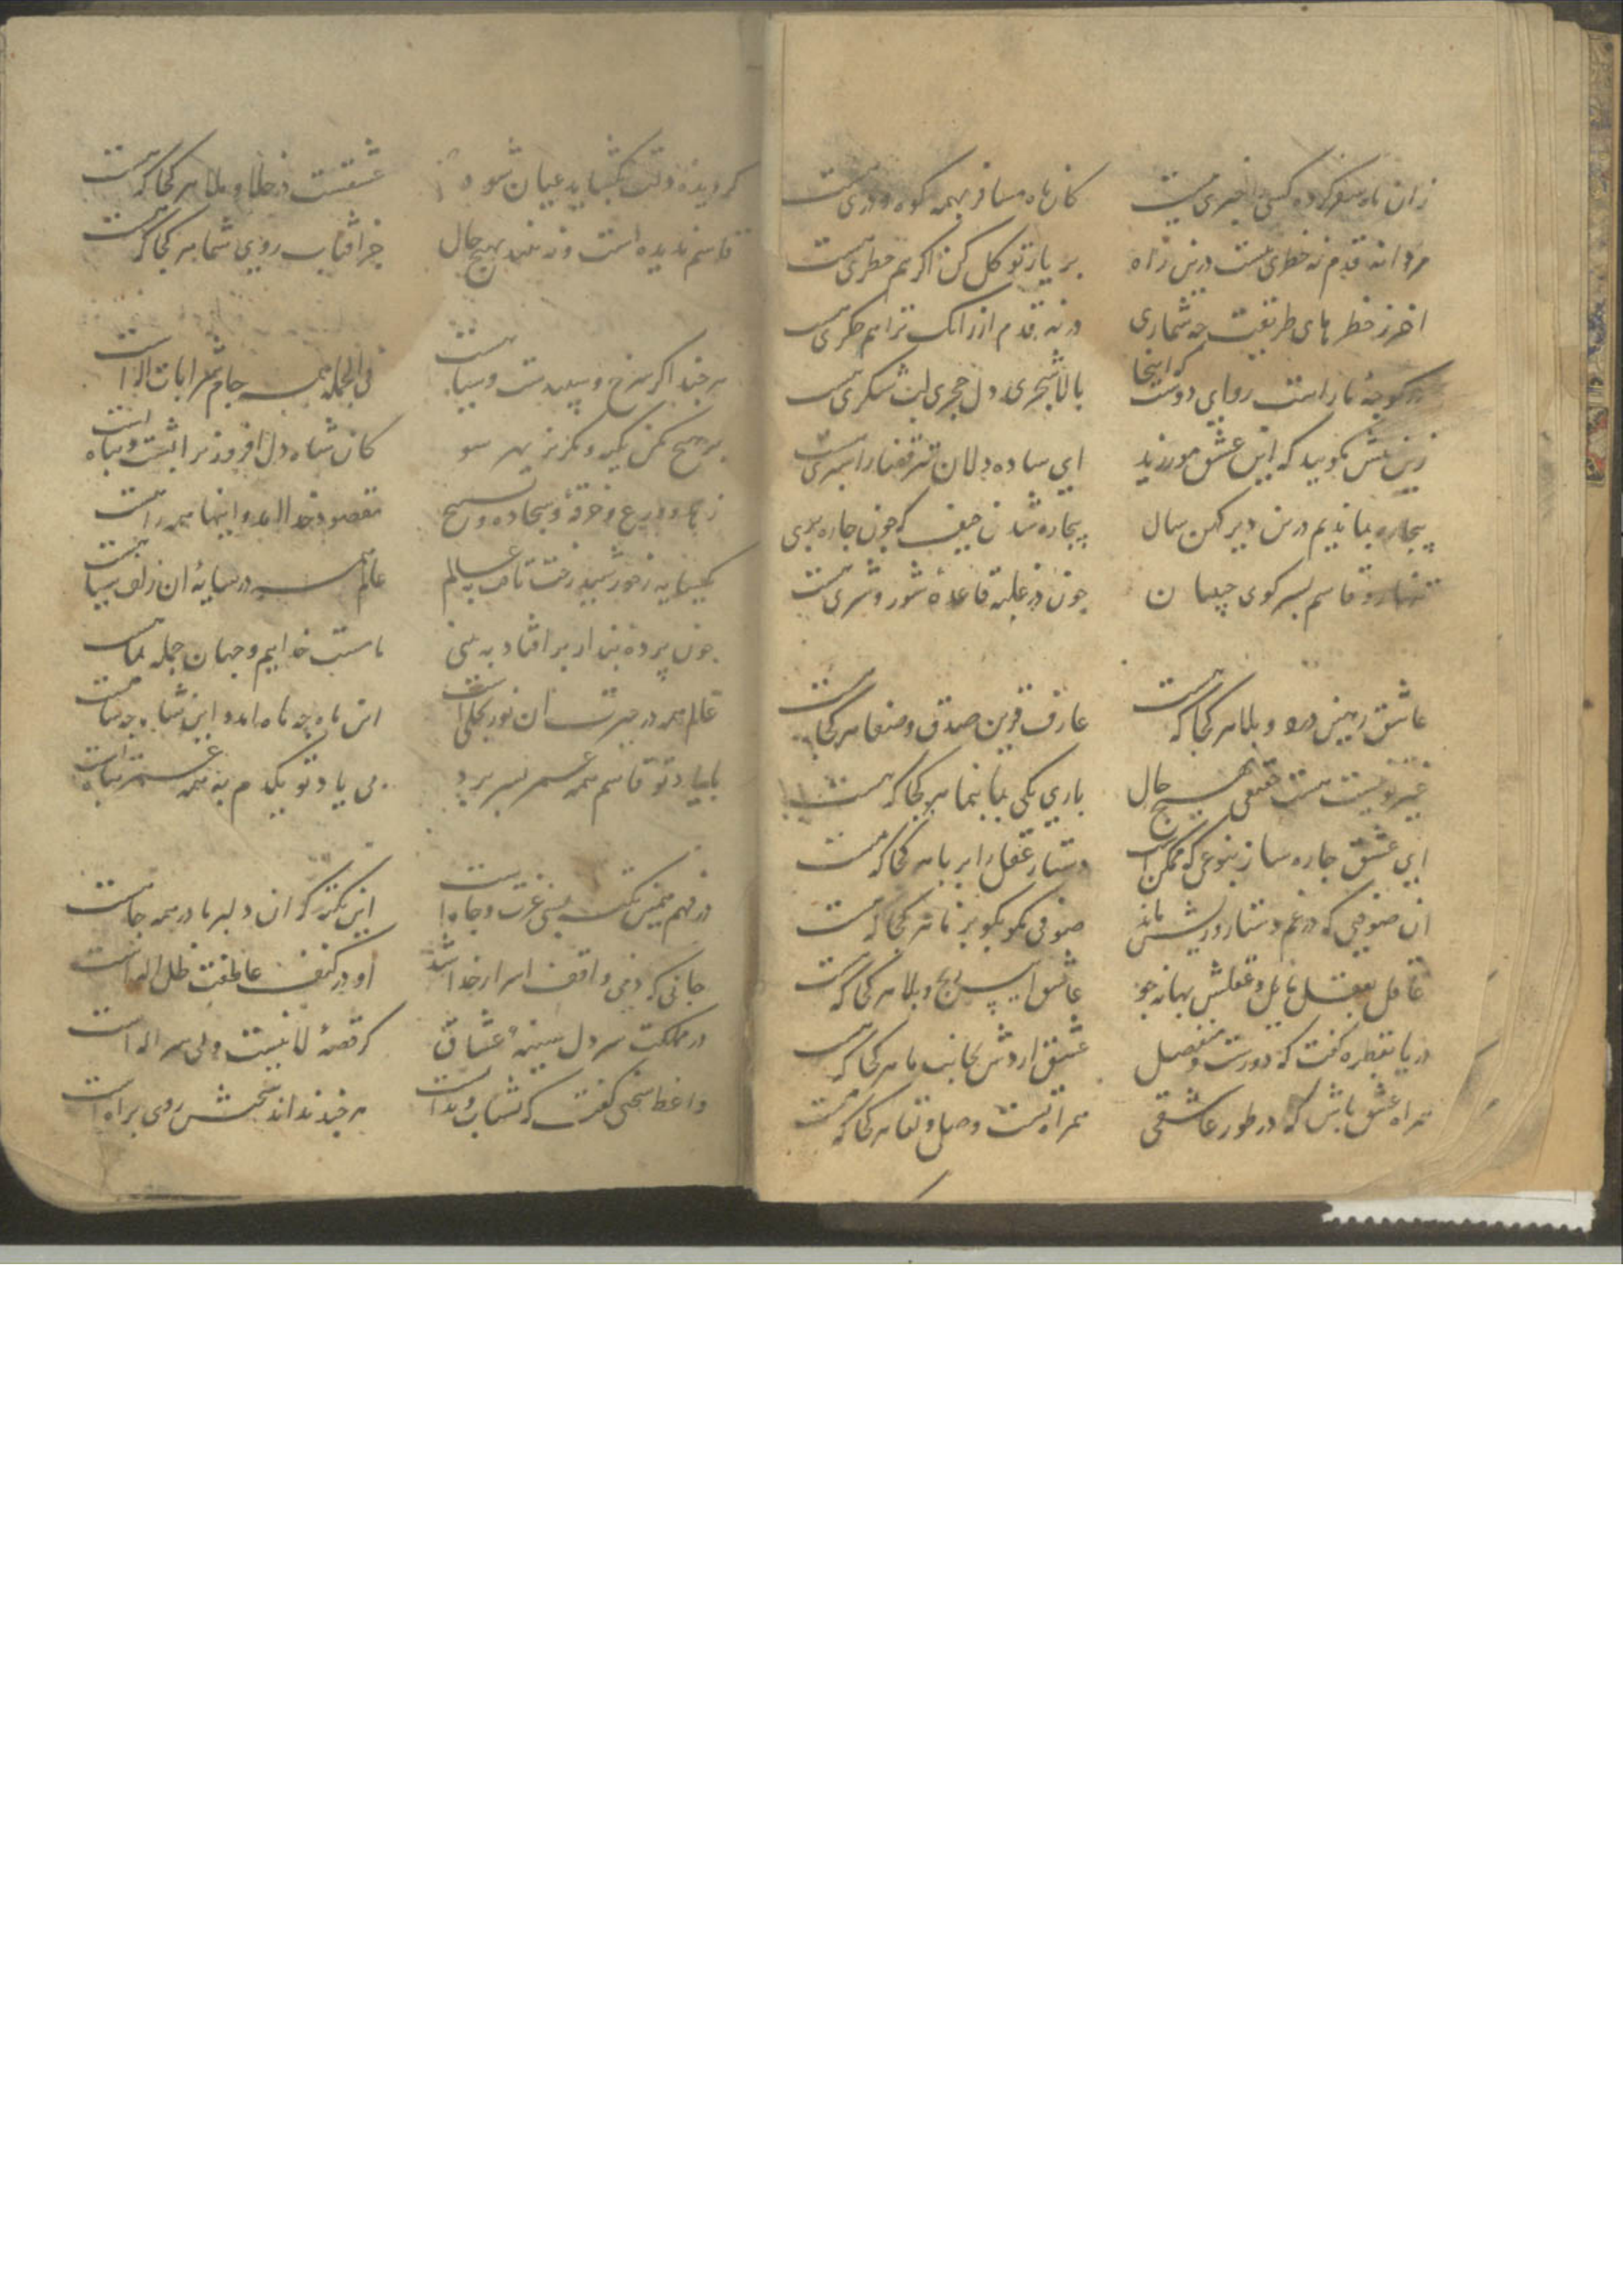 زان ماه سفر کرده کسی را خبری نیست
کان ماه مسافر بهمه کوه و دری هست
مردانه قدم نه خطری هست درین راه
بر یار توکل کن اگر هم خطری هست
آخر ز خطرهای طریقت چه شماری
در نه قدم ار زانک ترا هم جگری هست
در کوچه ما راست روای دوست که اینجا
بالا شجری دل حجری لب شکری هست
زین بیش مگویید که این عشق مورزید
ای ساده دلان تیر قضا را سپری هست
بیچاره بماندیم درین دیر کهن سال
بیچاره شدن حیف که چون چاره بری
تنها رو قاسم بسر کوی حبیبان
چون در غلبه قاعده شور و شری هست
عاشق رهین درد و بلا هر کجا که هست
عارف قرین صدق و صفا هر کجا که هست
غیر تو نیست هست حقیقی بهیچ حال
باری یکی بما بنما هر کجا که هست
ای عشق چاره ساز بنوعی که ممکن است
دستار عقل را بربا هر کجا که هست
آن صوفیی که در غم دستار و ریش ماند
صوفی مگو بگو بز ما هر کجا که هست
عاقل بعقل مایل و عقلش بهانه جو
عاشق اسیر رنج و بلا هر کجا که هست
دریا بقطره گفت که دورست و منفصل
عشق اردش بجانب ما هر کجا که هست
همراه عشق باش که در طور عاشقی
همراه تست وصل و لقا هر کجا که هست
گر دیده دلت بگشاید عیان شود
عشقست در خلا و ملا هر کجا که هست
قاسم ندیده است و نه بیند بهیچ حال
جز آفتاب روی شما هر کجا که هست
هر چند اگر سرخ و سپیدست و سیاهست
فی الجمله همه جام شرابات اله است
بر هیچ مکن تکیه و مگریز بهر سو
کان شاه دل افروز ترا پشت و پناه است
زهد و ورع و خرقه و سجاده و تسبیح
مقصود خدا آمد و اینها همه راهست
یکسایه ز خورشید رخت تافت به عالم
عالم همه در سایه آن زلف سیاهست
چون پرده پندار بر افتاد به بینی
ماست خداییم و جهان جمله
عالم همه در حیرت آن نور تجلی است
این ماه چه ماه آمد و این شاه چه شاهست
با یاد تو قاسم همه عمر بسر برد
بی یاد تو یکدم به همه عمر تباه است
در فهم همین نکته بسی عزت و جاه است
این نکته که آن دلبر ما در همه جا هست
جانی که دمی واقف اسرار خدا شد
او در کنف عاطفت ظل اله است
در مملکت سر دل سینه عشاق
گر قصه لا نیست ولی سر اله است
واعظ سخنی گفت که بشتاب و
هر چند نداند سخنش روی براه است